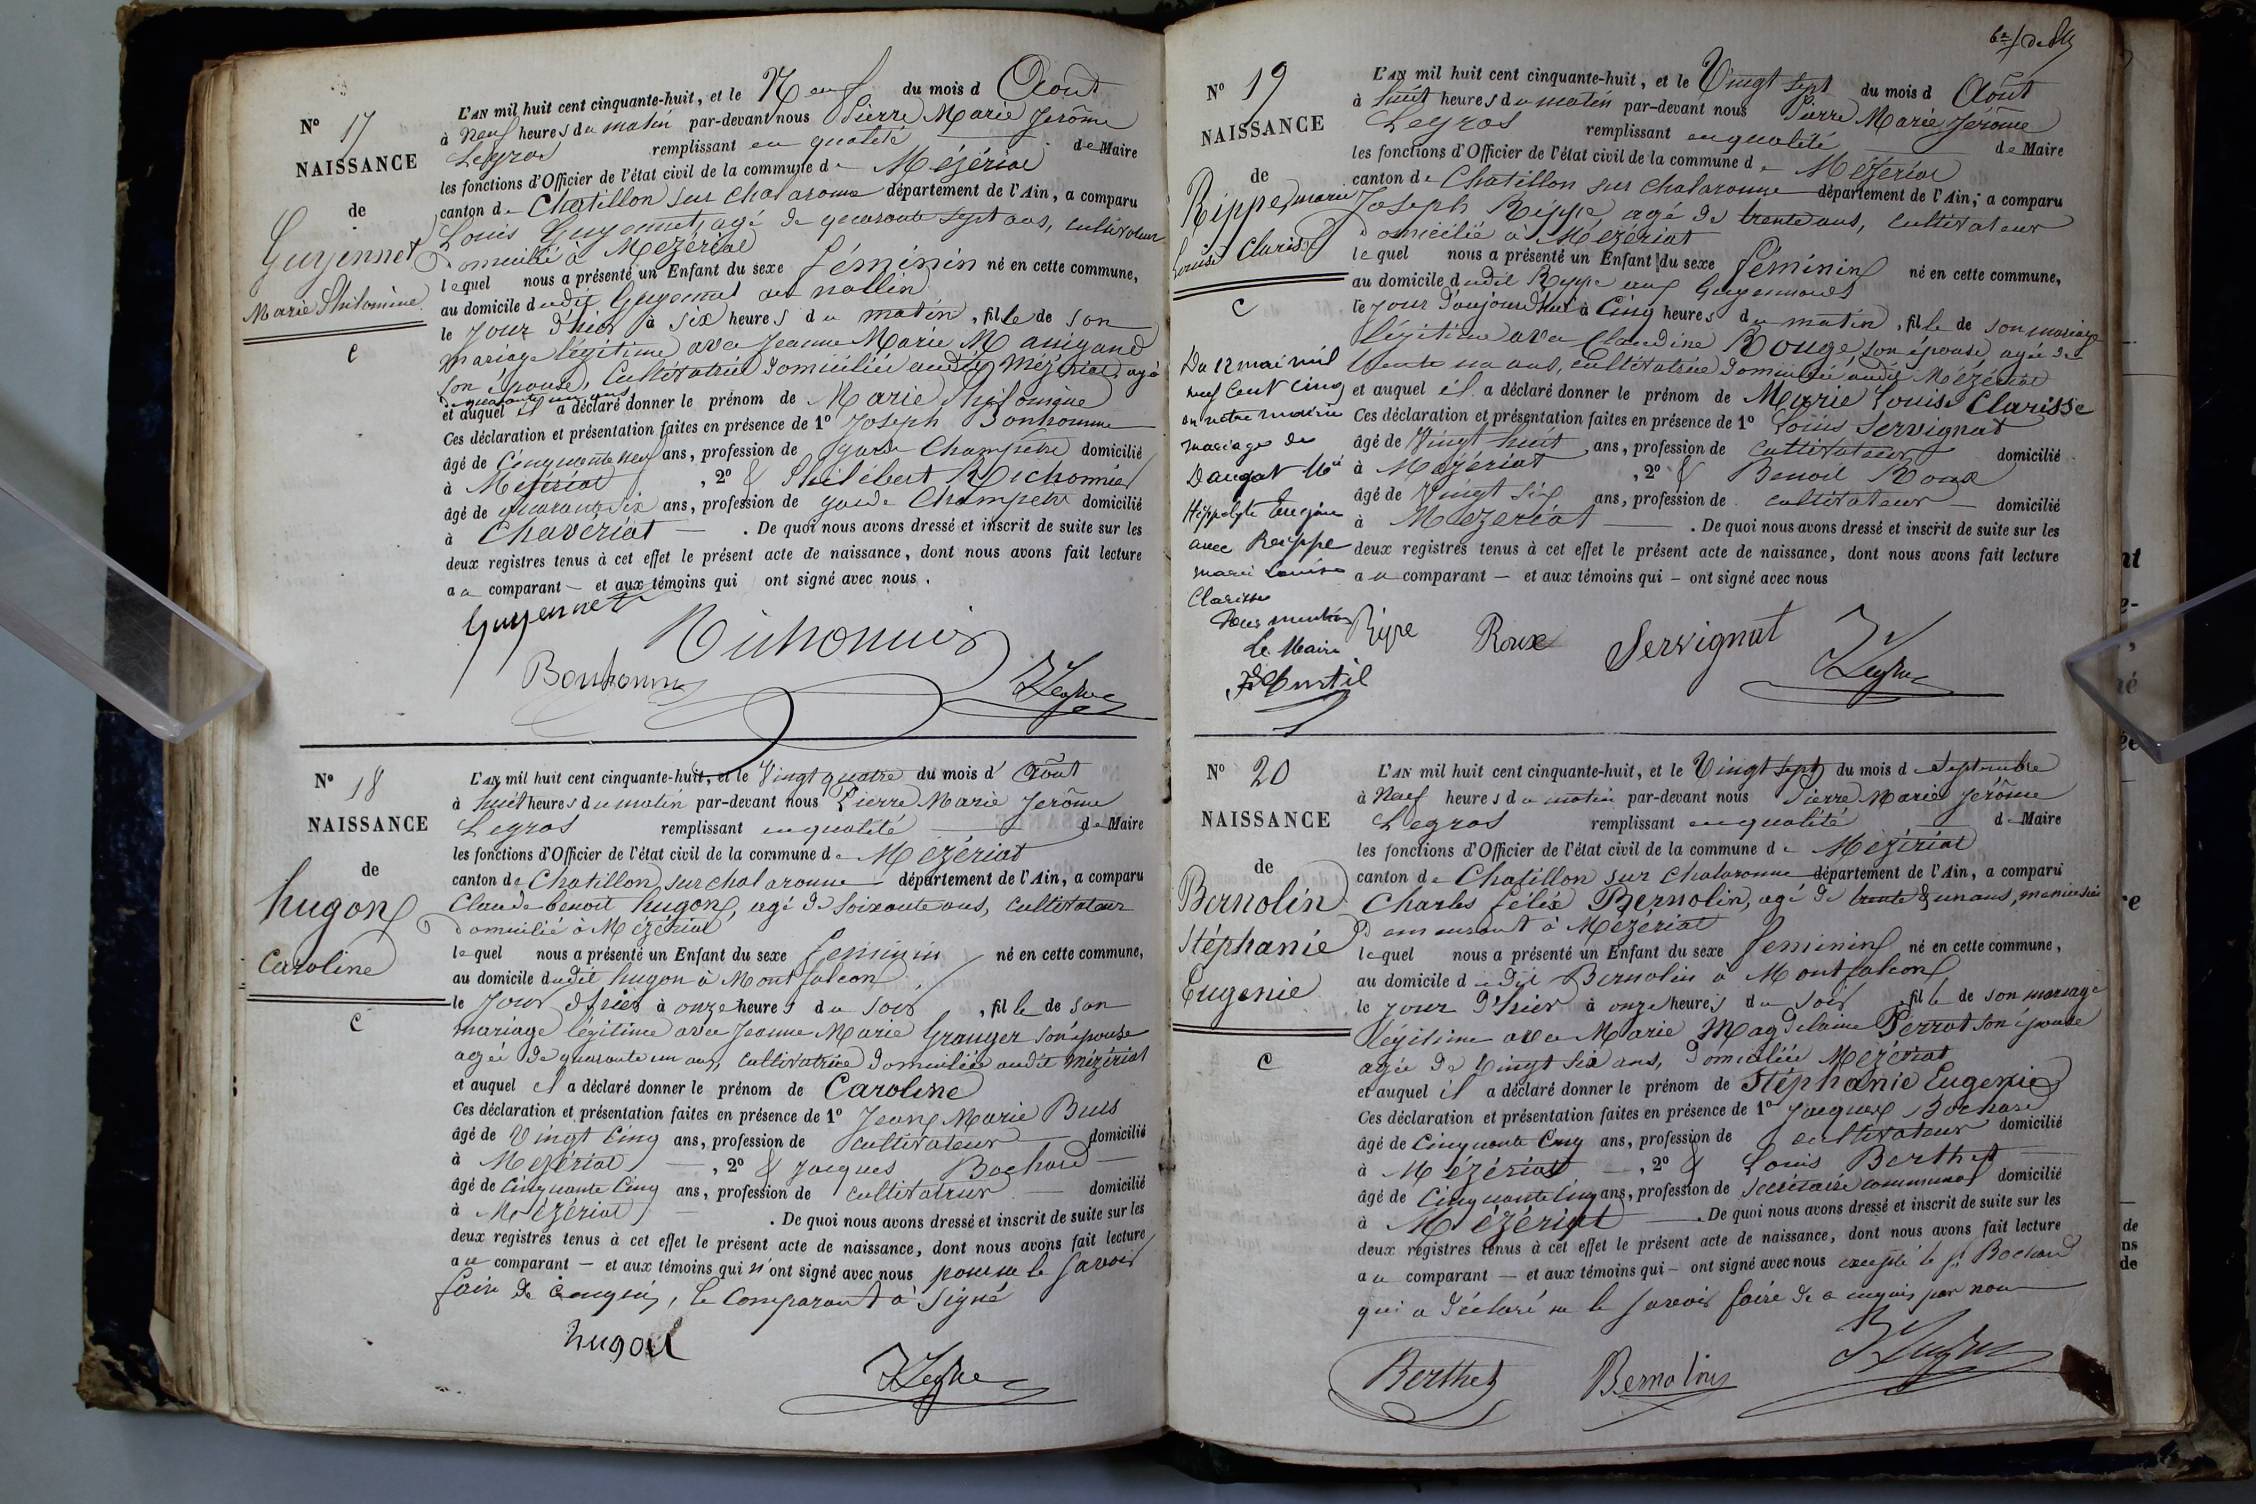 N° 17
NAISSANCE
de
Guyennet
Marie Philomine
C
L'AN mil huit cent cinquante-huit, et le Neuf du mois d Août
à Neuf heures du matin par-devant nous Pierre Marie Jerôme
Legros remplissant en qualité de Maire
les fonctions d'Officier de l'état civil de la commune de Mézériat
canton de Chatillon sur chalaronne département de l'Ain, a comparu
Louis Guyennet, agé de quarante sept ans, cultivateur
Domicilié à Mézériat
lequel nous a présenté un Enfant du sexe féminin né en cette commune,
au domicile dudit Guyennet au nollin
le jour d'hier à six heures du matin, fille de son
mariage légitime avec Jeanne Marie Manigand
son épouse, Cultivatrice domiciliée audit Mézériat, agé
de quarante un ans
et auquel il a déclaré donner le prénom de Marie Philomine
Ces déclaration et présentation faites en présence de 1° Joseph Bonhomme
âgé de Cinquante neuf ans, profession de garde Champetre domicilié
à Mézériat, 2° & Philibert Michonnier
âgé de quarante six ans, profession de garde Champetre domicilié
à Chavériat — . De quoi nous avons dressé et inscrit de suite sur les
deux registres tenus à cet effet le présent acte de naissance, dont nous avons fait lecture
au comparant — et aux témoins qui ont signé avec nous.
Guyennet
Michonnier
Bonhomme
Legros
N° 18
NAISSANCE
de
hugon
Caroline
C
L'AN mil huit cent cinquante-huit, et le Vingt quatre du mois d' Août
à huit heures du matin par-devant nous Pierre Marie Jerôme
Legros remplissant en qualité de Maire
les fonctions d'Officier de l'état civil de la commune de Mézériat
canton de Chatillon sur chalaronne département de l'Ain, a comparu
Claude benoit hugon, agé de soixante ans, cultivateur
domicilié à Mézériat
lequel nous a présenté un Enfant du sexe féminin né en cette commune,
au domicile dudit hugon à Montfalcon
le jour d'hier à onze heures du soir, fille de son
mariage légitime avec Jeanne Marie Granger son épouse
agée de quarante un ans, cultivatrice domiciliée audit Mézériat
et auquel il a déclaré donner le prénom de Caroline
Ces déclaration et présentation faites en présence de 1° Jean Marie Buis
âgé de Vingt Cinq ans, profession de cultivateur domicilié
à Mézériat — , 2° & Jacques Bochard —
âgé de Cinquante Cinq ans, profession de cultivateur — domicilié
à Mézériat — . De quoi nous avons dressé et inscrit de suite sur les
deux registres tenus à cet effet le présent acte de naissance, dont nous avons fait lecture
au comparant — et aux témoins qui n'ont signé avec nous pour ne le savoir
faire de ce enquis, le Comparant à signé
hugon
Legros
N° 19
NAISSANCE
de
Rippe, marie
Louise Clarisse
C
Du 12 mai mil
neuf Cent Cinq
en notre mairie
mariage de
Dangat
Hippolyte Eugène
avec Reippe
marie Louise
Clarisse
Pour mention
Le Maire
L'AN mil huit cent cinquante-huit, et le Vingt sept du mois d Août
à huit heures du matin par-devant nous Pierre Marie Jerôme
Legros remplissant en qualité de Maire
les fonctions d'Officier de l'état civil de la commune de Mézériat
canton de Chatillon sur chalaronne département de l'Ain, a comparu
Joseph Rippe, agé de trente ans, cultivateur
domicilié à Mézériat
lequel nous a présenté un Enfant du sexe féminin né en cette commune,
au domicile dudit Rippe aux Guyennons
le jour d'aujourd'hui à Cinq heures du matin, fille de son mariage
légitime avec Claudine Rouge, son épouse, agée de
trente un ans, cultivatrice domiciliée audit Mézériat
et auquel il a déclaré donner le prénom de Marie Louise Clarisse
Ces déclaration et présentation faites en présence de 1° Louis Servignat
âgé de Vingt huit ans, profession de cultivateur domicilié
à Mézériat, 2° & Benoit Roux
âgé de Vingt Six ans, profession de cultivateur — domicilié
à Mézériat — . De quoi nous avons dressé et inscrit de suite sur les
deux registres tenus à cet effet le présent acte de naissance, dont nous avons fait lecture
au comparant — et aux témoins qui — ont signé avec nous
Rippe Roux Servignat Legros
N° 20
NAISSANCE
de
Bernolin
Stéphanie
Eugenie
C
L'AN mil huit cent cinquante-huit, et le Vingt sept du mois de Septembre
à Neuf heures du matin par-devant nous Pierre Marie Jerôme
Legros remplissant en qualité de Maire
les fonctions d'Officier de l'état civil de la commune de Mézériat
canton de Chatillon sur Chalaronne département de l'Ain, a comparu
Charles félix Bernolin, agé de trente & un ans, menuisier
Demeurant à Mézériat
lequel nous a présenté un Enfant du sexe féminin né en cette commune,
au domicile dudit Bernolin à Montfalcon
le jour d'hier à onze heures du soir, fille de son mariage
légitime avec Marie Magdelaine Perrot son épouse
agée de Vingt six ans, domiciliée Mézériat
et auquel il a déclaré donner le prénom de Stéphanie Eugenie
Ces déclaration et présentation faites en présence de 1° Jacques Bochard
âgé de Cinquante Cinq ans, profession de cultivateur domicilié
à Mézériat — , 2° & Louis Berthet
âgé de Cinquante Cinq ans, profession de secrétaire communal domicilié
à Mézériat — . De quoi nous avons dressé et inscrit de suite sur les
deux registres tenus à cet effet le présent acte de naissance, dont nous avons fait lecture
au comparant — et aux témoins qui — ont signé avec nous excepté le Sr Bochard
qui a déclaré ne le savoir faire de ce enquis par nous
Berthet Bernolin Legros